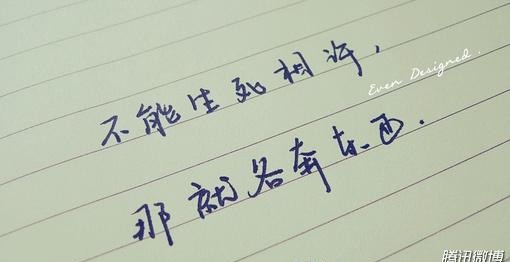 不能生死相许，
Even Designed.
那就各奔东西.
腾讯微博